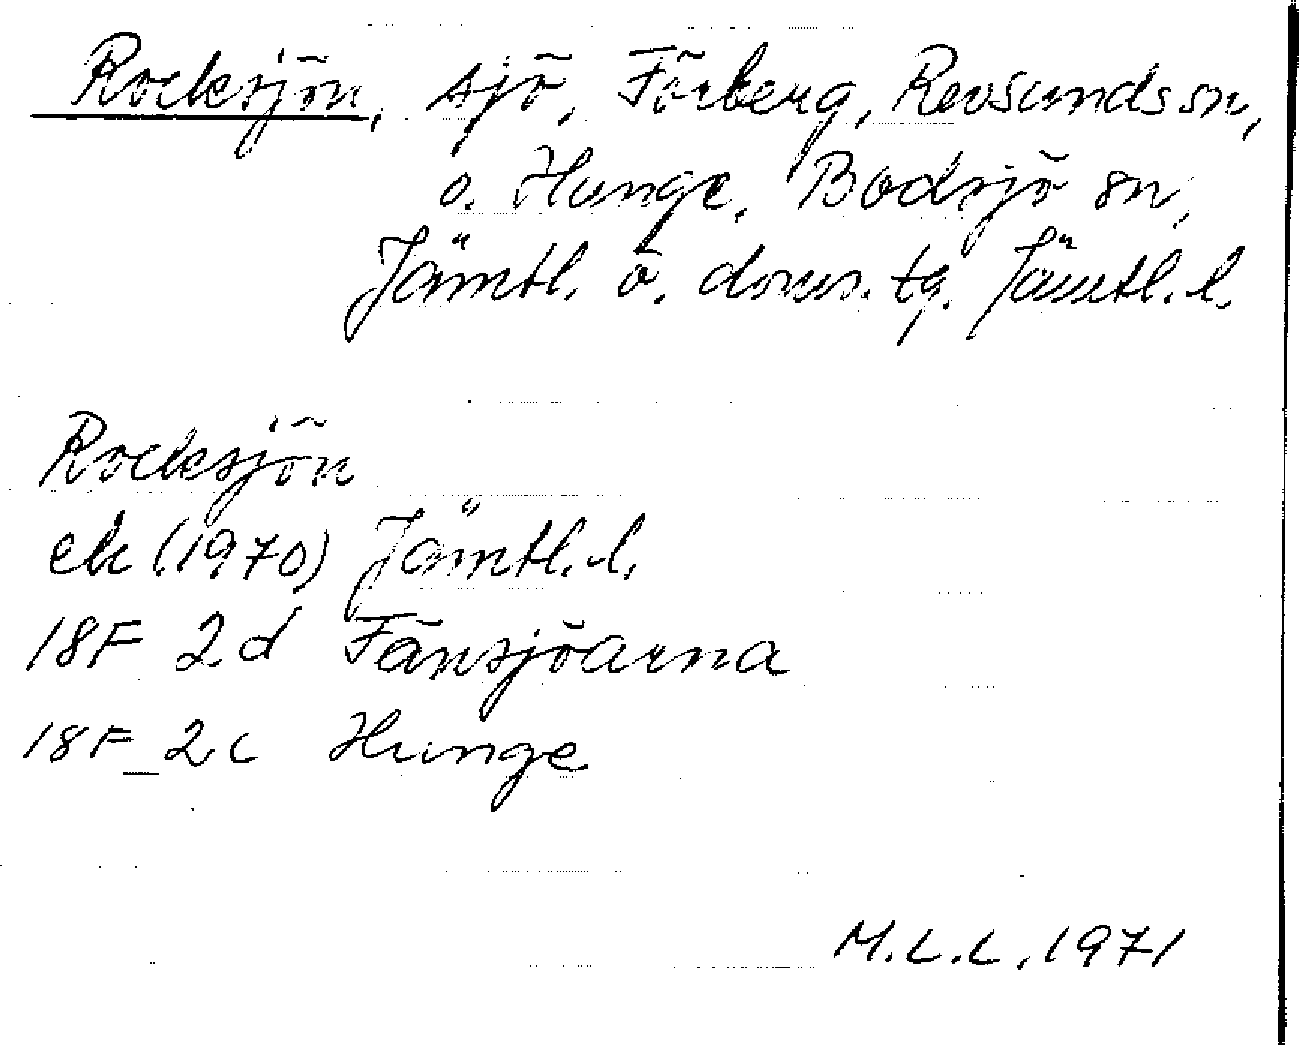 Rocksjön, sjö, Förberg, Revsunds sn,
o. Hunge, Bodsjö sn,
Jämtl. ö. doms. tg. Jämtl. l.
Rocksjön
ek (1970) Jämtl. l.
18F 2d Fänsjöarna
18F 2c Hunge
M.L.L. 1971